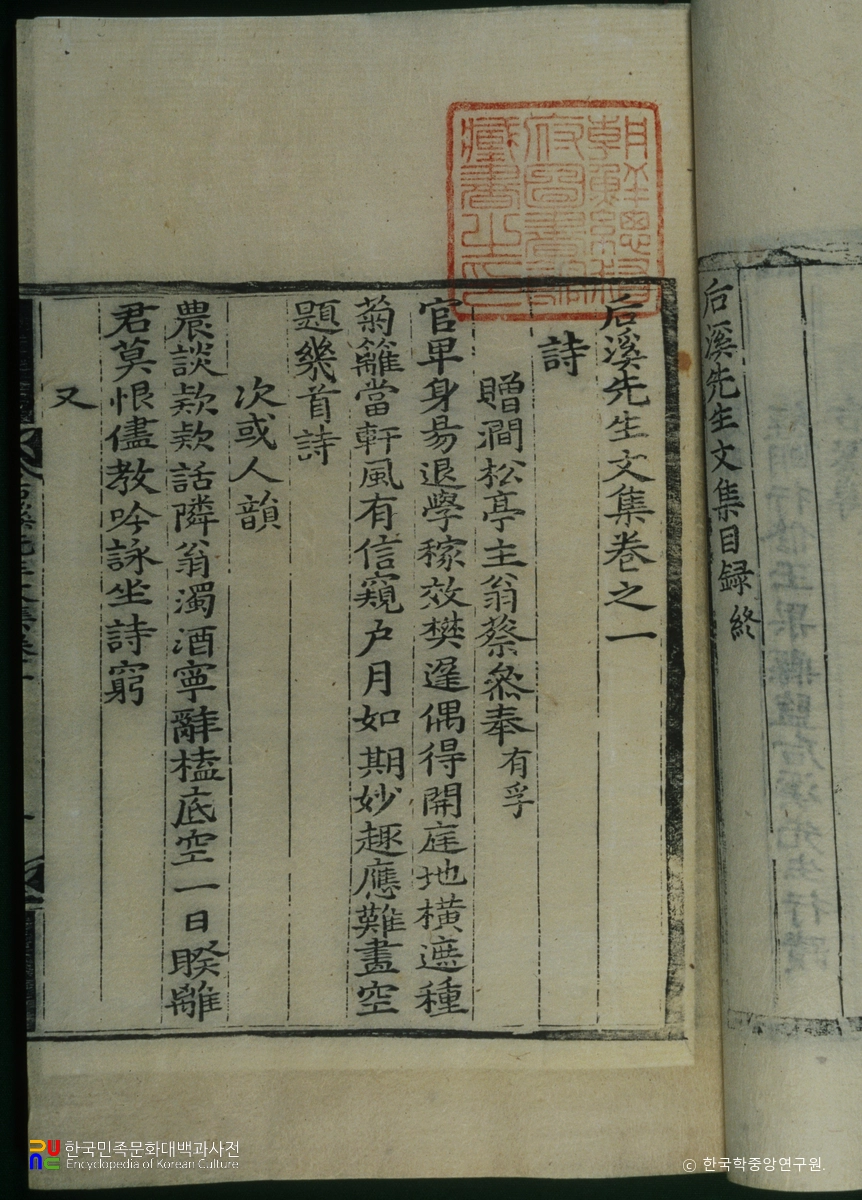 后溪先生文集目録終
朝鮮總督
府圖書館
藏書之印
后溪先生文集卷之一
詩
贈澗松亭主翁蔡叅奉有孚
官卑身易退學稼效樊遲偶得開庭地橫遮種
菊籬當軒風有信窺户月如期妙趣應難盡空
題幾首詩
次或人韻
農談欵欵話隣翁濁酒寧辭榼底空一日睽離
君莫恨儘教吟詠坐詩窮
又
한국민족문화대백과사전
Encyclopedia of Korean Culture
ⓒ 한국학중앙연구원.